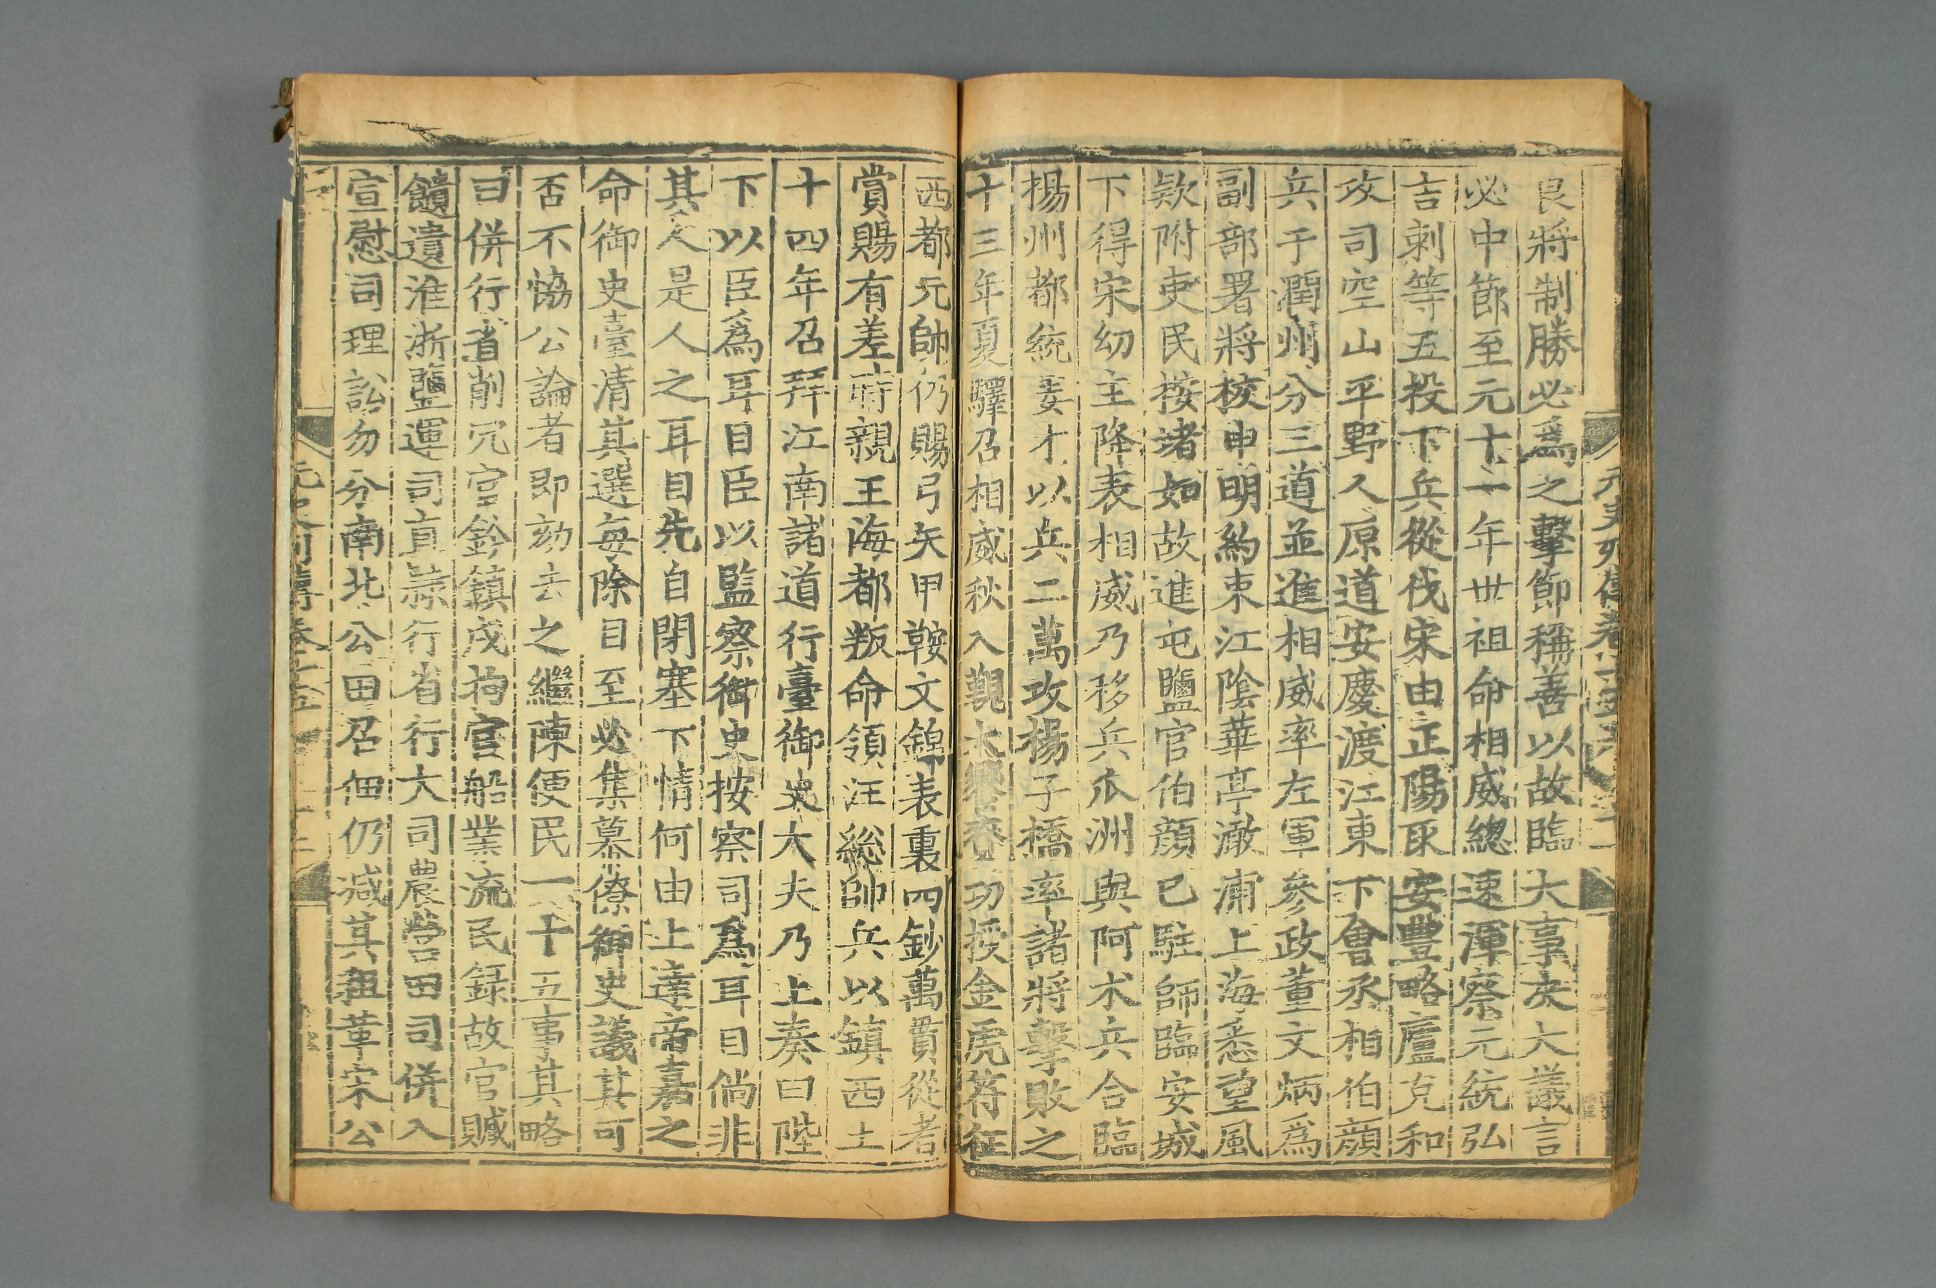 良將制勝必爲之擊節稱善以故臨大享決大議言
必中節至元十一年世祖命相威總速渾察元統弘
吉剌等五投下兵從伐宋由正陽取安豐略廬克和
攻司空山平野人原道安慶渡江東下會丞相伯顔
兵于潤州分三道並進相威率左軍參政董文炳爲
副部署將校申明約束江陰華亭澉浦上海悉望風
欵附吏民按堵如故進屯鹽官伯顔已駐師臨安城
下得宋幼主降表相威乃移兵瓜洲與阿朮兵合臨
揚州都統姜才以兵二萬攻楊子橋率諸將擊敗之
十三年夏驛召相威秋入覲大饗賚功授金虎符征
西都元帥仍賜弓矢甲鞍文錦表裏四鈔萬貫從者
賞賜有差時親王海都叛命領汪総帥兵以鎮西土
十四年召拜江南諸道行臺御史大夫乃上奏曰陛
下以臣爲耳目臣以監察御史按察司爲耳目倘非
其人是人之耳目先自閉塞下情何由上達帝嘉之
命御史臺清其選每除目至必集幕僚御史議其可
否不恊公論者即劾去之繼陳便民一十五事其略
曰併行省削冗官鈐鎮戍拘官船業流民録故官贓
饋遺淮浙鹽運司直隷行省行大司農營田司併入
宣慰司理訟勿分南北公田召佃仍减其租革宋公
元史列傳卷十五